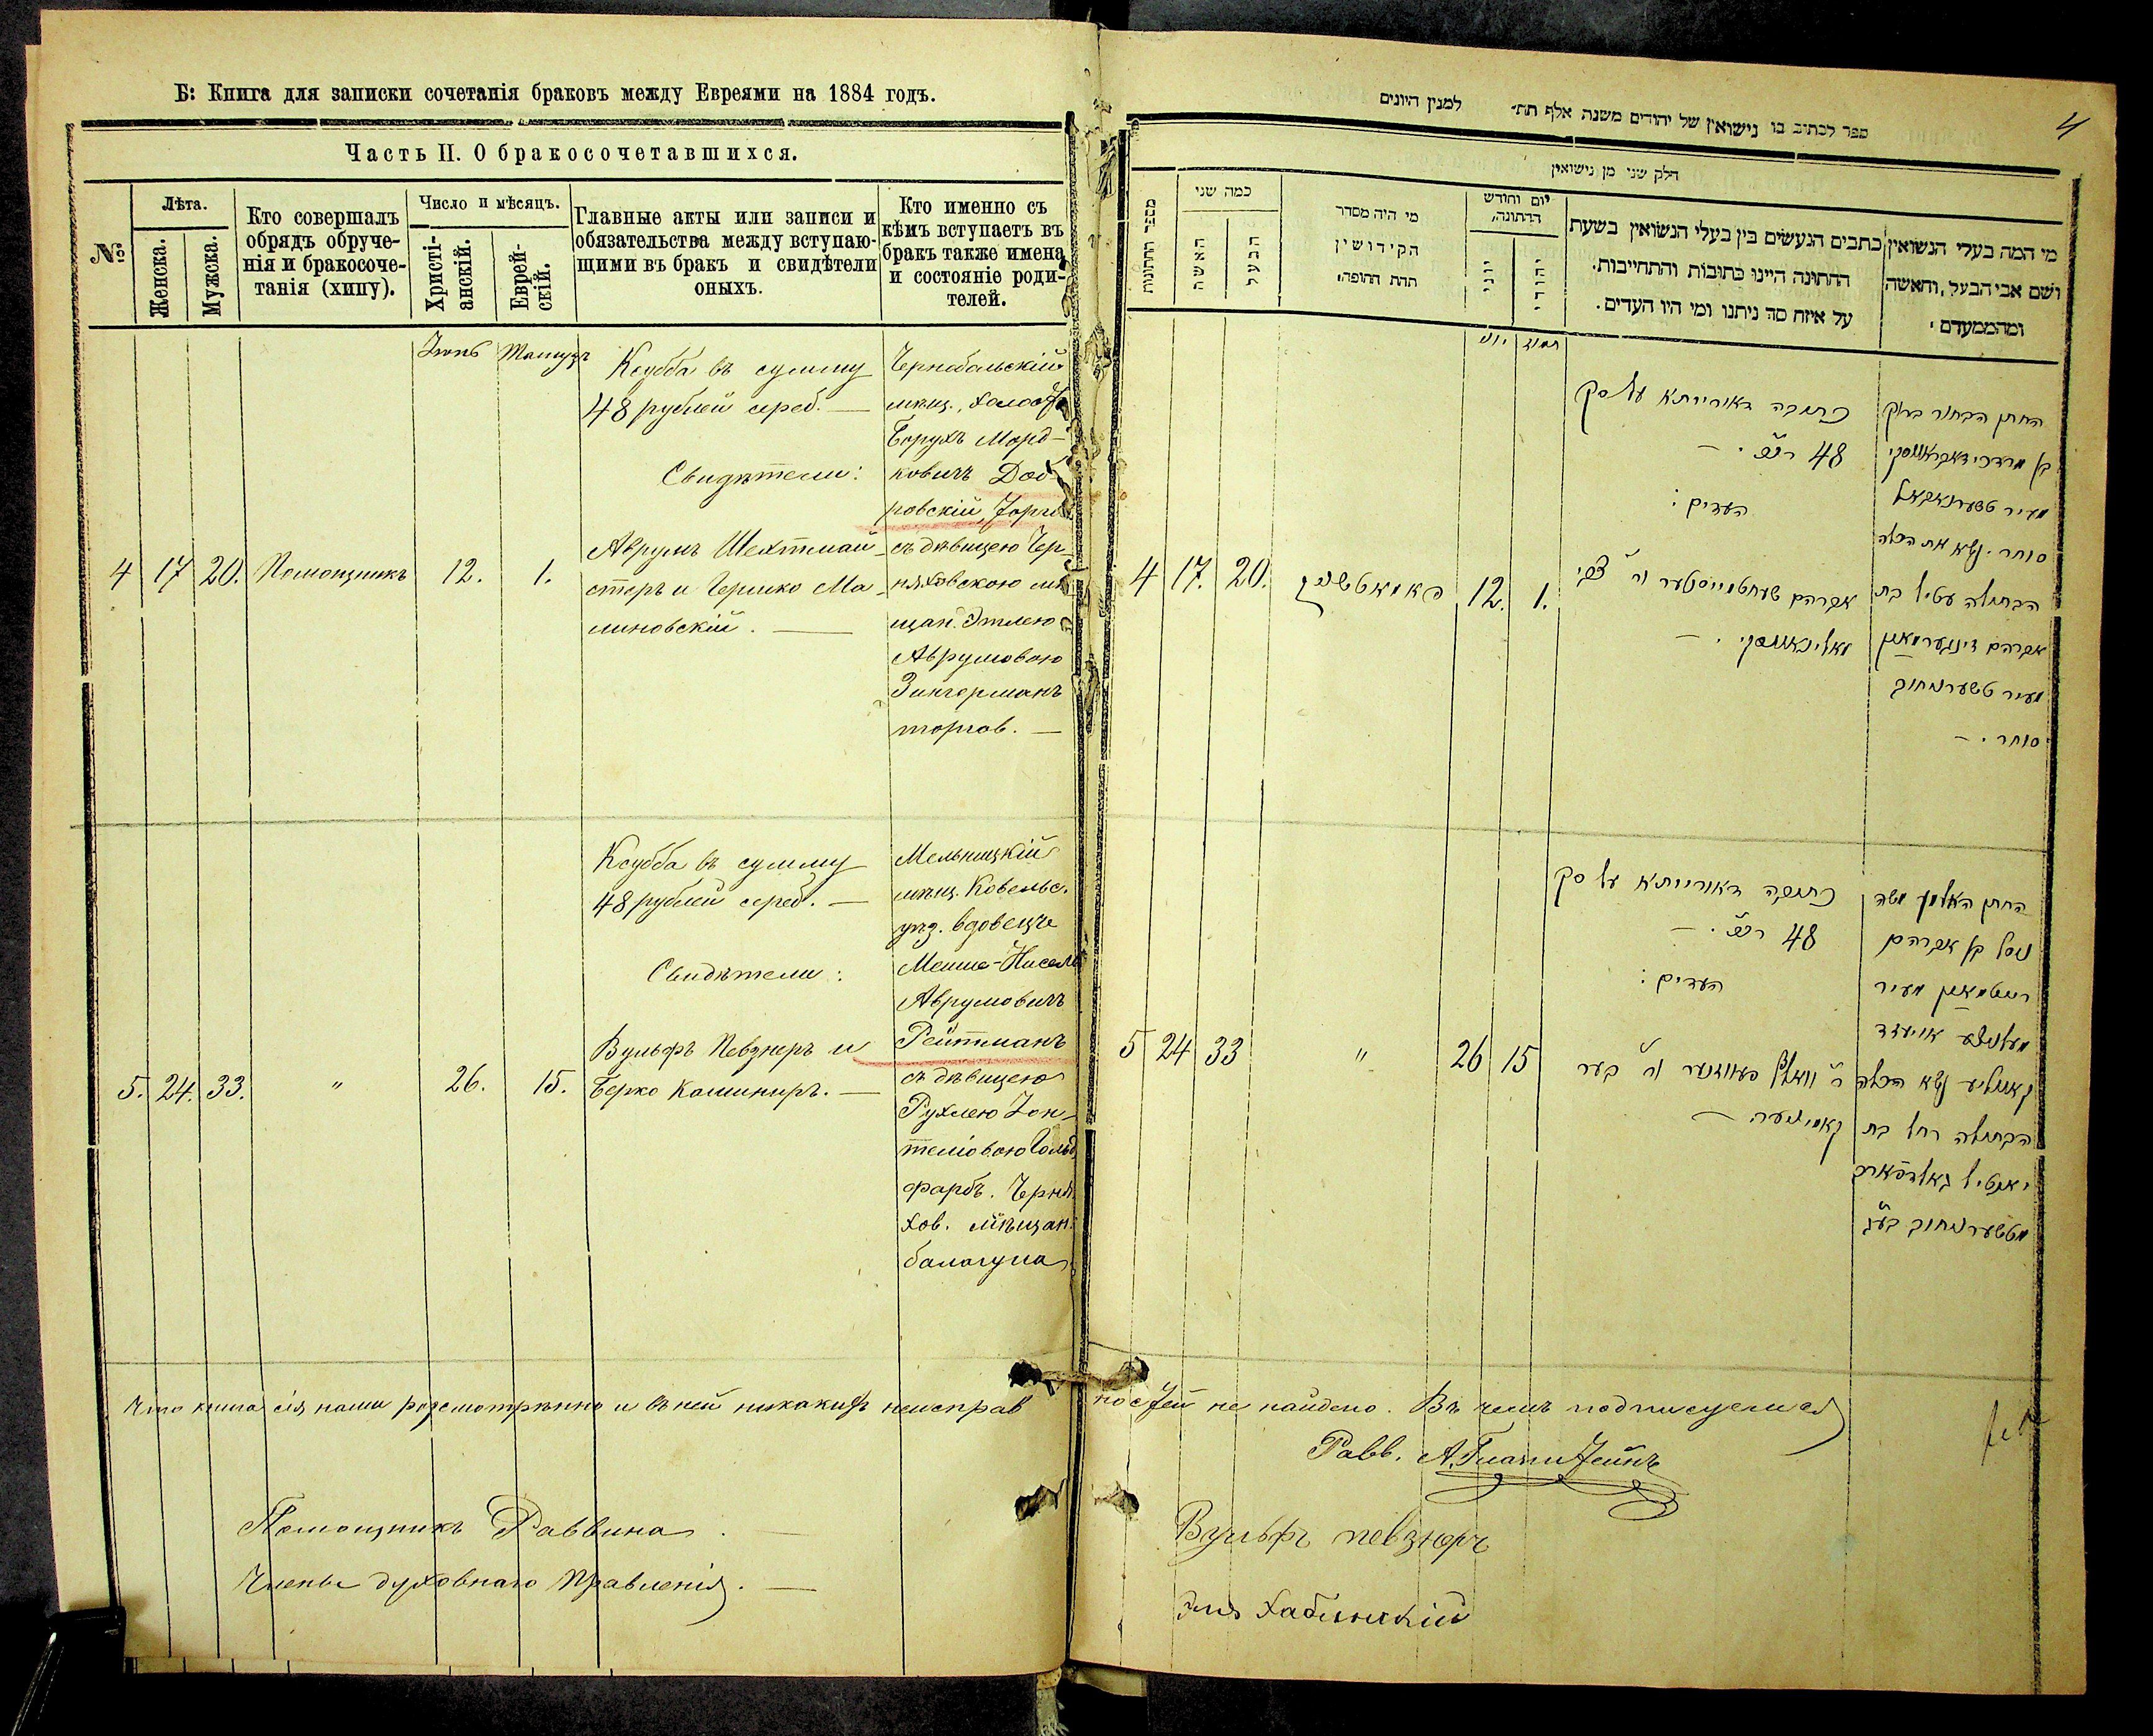 Б: Книга для записки сочетанія браковъ между Евреями на 1884 годъ.
Часть II. О бракосочетавшихся.
№
Лѣта.
Женска.
Мужска.
Кто совершалъ
обрядъ обруче-
нія и бракосоче-
танія (хипу).
Число и мѣсяцъ.
Христі-
анскій.
Еврей-
скій.
Главные акты или записи и
обязательства между вступаю-
щими въ бракъ и свидѣтели
оныхъ.
Кто именно съ
кѣмъ вступаетъ въ
бракъ также имена
и состояніе роди-
телей.
Іюнь
Тамузъ
4
17
20.
Помощникъ
12.
1.
Ксубба въ сумму
48 рублей сереб. —
Свидѣтели:
Аврумъ Шехтмай-
стеръ и Гершко Ма-
линовскій. —
Чернобыльскій
мѣщ., холост
Борухъ Морд-
ковичъ Доб-
ровскій, торгов
съ дѣвицею Чер-
няховскою мѣ
щан. Этлею
Аврумовою
Зингерманъ
торгов. —
5.
24.
33.
"
26.
15.
Ксубба въ сумму
48 рублей сереб. —
Свидѣтели:
Вульфъ Певзнеръ и
Берко Кашниръ. —
Мельницкій
мѣщ. Ковельс.
уѣз. вдовецъ
Мошко-Нисель
Аврумовичъ
Рейтманъ
съ дѣвицею
Рухлею Іон-
теліовою Гольд
фарбъ. Черня
хов. мѣщан.
балагула
Что книга сія нами розсмотрѣнно и въ ней никакихъ неисправ
Помощникъ Раввина. —
Члены духовнаго Правленія. —
4
ספר לכתיב בו נישואין של יהודים משנת אלף תת״ למנין היונים
חלק שני מן נישואין
מספר החתונות
כמה שני
האשה
הבעל
מי היה מסדר
הקידושין
תחת החופה,
יום וחודש
החתונה,
יוני
יהודי
כתבים הנעשים בין בעלי הנשואין בשעת
החתונה היינו כתובות והתחייבות.
על איזה סך ניתנו ומי היו העדים.
מי המה בעלי הנשואין
ושם אבי הבעל, והאשה
ומהממעדם.
יוני
תמוז
4
17.
20.
12.
1.
כתובה דאורייתא על סך
48 רו״כ. —
העדים:
אברהם שעחטמייסטער ור׳ צבי
מאלינאווסקי. —
החתן הבחור ברוך
בן מרדכי דאבראווסקי
מעיר טשערנאבאל
סוחר. נשא את הכלה
הבתולה עטיל בת
אברהם זינגערמאן
מעיר טשערניחוב
סוחר. —
5
24
33
"
26
15
כתובה דאורייתא על סך
48 רו״כ. —
העדים:
ר׳ וואלף פעווזנער ור׳ בער
קאשניער. —
החתן האלמן משה
ניסל בן אברהם
רייטמאן מעיר
מעלניצע אויעזד
קאוולע נשא הכלה
הבתולה רחל בת
יאנטיל גאלדפארב
מטשערניחוב בע״ג
ностей не найдено. Въ чемъ подписуемся
Равв. А. Глазштейнъ
Вульфъ певзнеръ